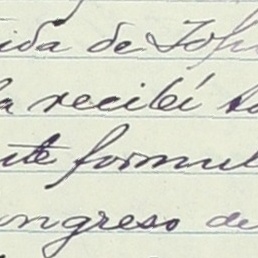 ida de Tofi
la recibí to
nte formul
ongreso de